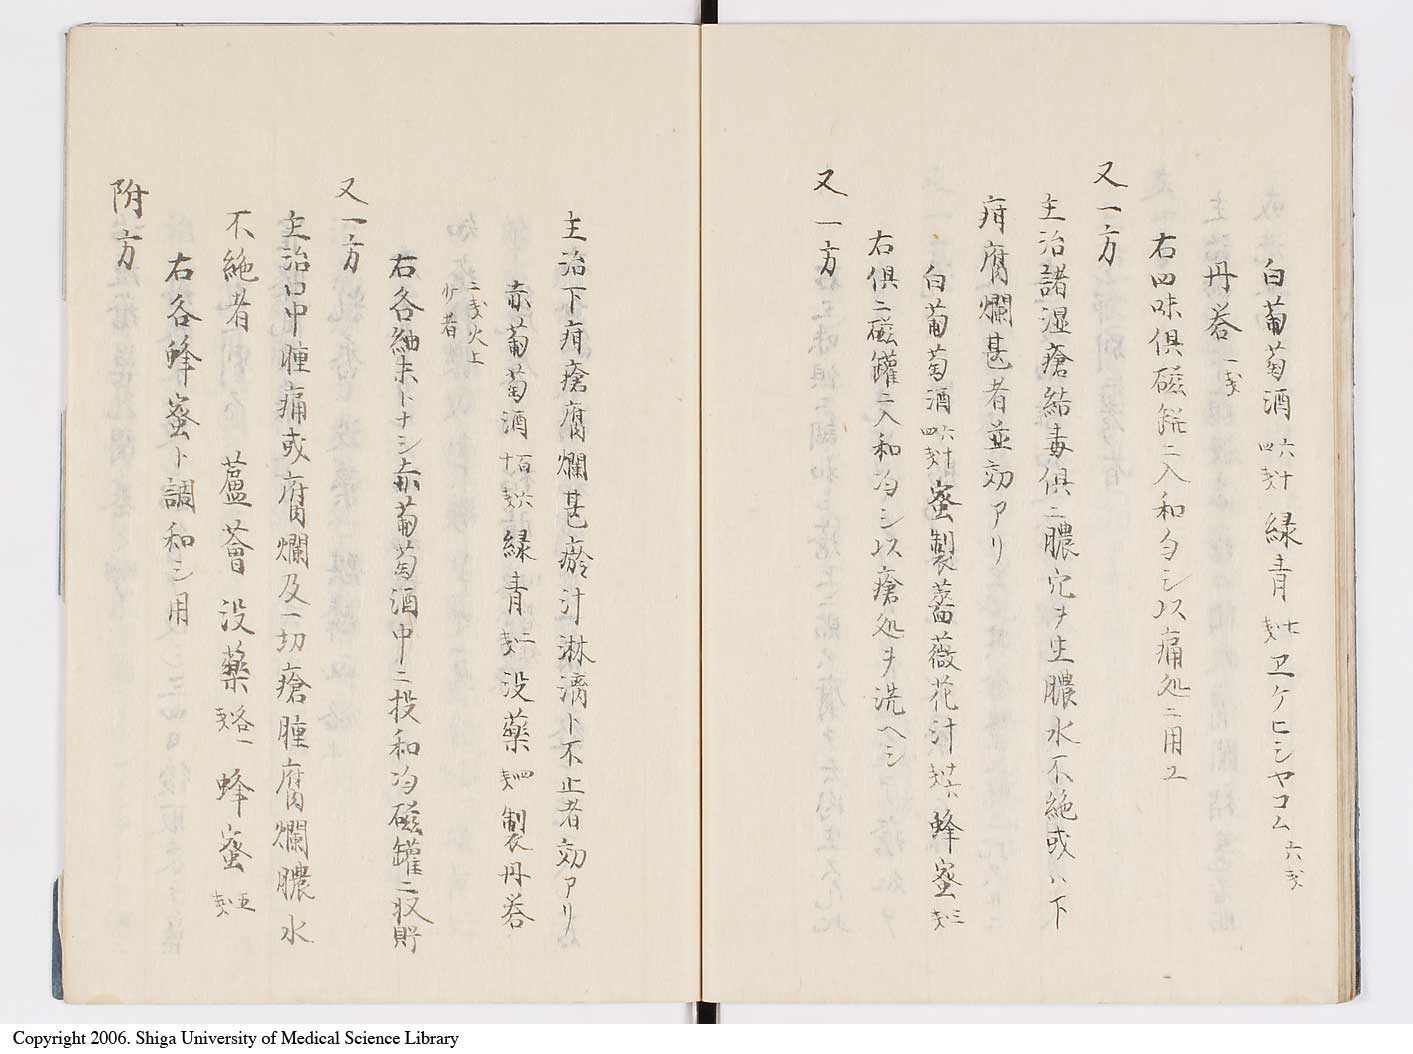 白葡萄酒 六十四戔 緑青 七戔 ヱケヒシヤコム 六戔
丹岑 一戔
右四味倶磁餅ニ入和匀シ以痛処ニ用ユ
又一方
主治諸湿瘡結毒倶ニ膿穴ヲ生膿水不絶或ハ下
疳腐爛甚者並効アリ
白葡萄酒 六十四戔 蜜製薔薇花汁 十六戔 蜂蜜 三戔
右倶ニ磁罐ニ入和均シ以瘡処ヲ洗ヘシ
又一方
主治下疳瘡腐爛甚瘀汁淋滴ト不止者効アリ
赤葡萄酒 百六十戔 緑青 二戔 没藥 四戔 製丹岑
二戔火上
少者
右各細末トナシ赤葡萄酒中ニ投和均磁罐ニ収貯
又一方
主治口中腫痛或腐爛及一切瘡腫腐爛膿水
不絶者 蘆薈 没藥 各一戔 蜂蜜 五戔
右各蜂蜜ト調和シ用
附方
Copyright 2006. Shiga University of Medical Science Library